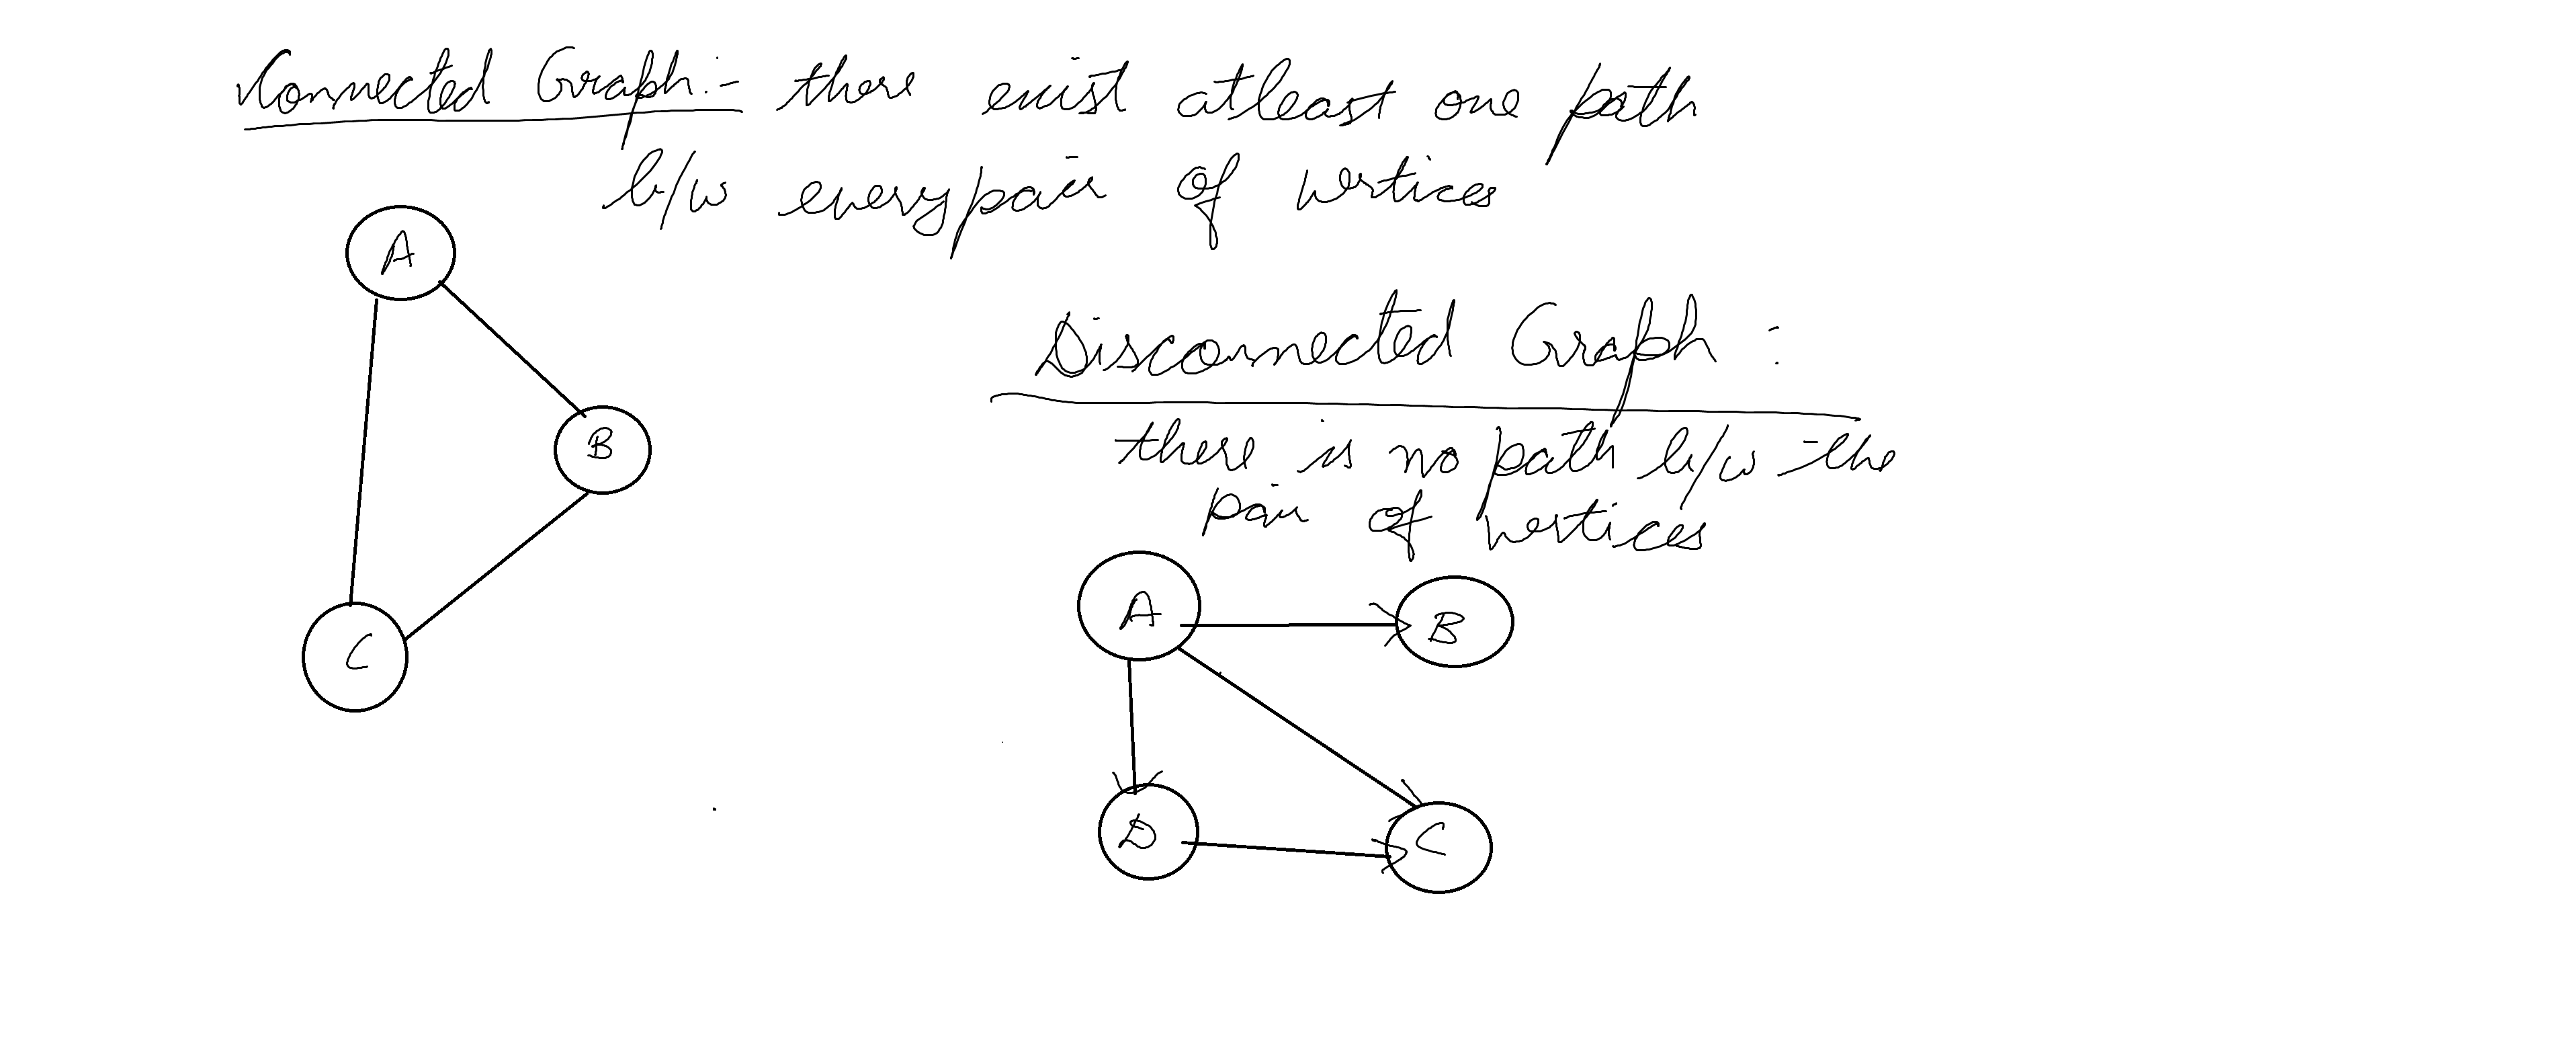 Connected Graph:- there exist atleast one path
b/w every pair of vertices
A
B
C
Disconnected Graph :
there is no path b/w the
pair of vertices
A
B
D
C